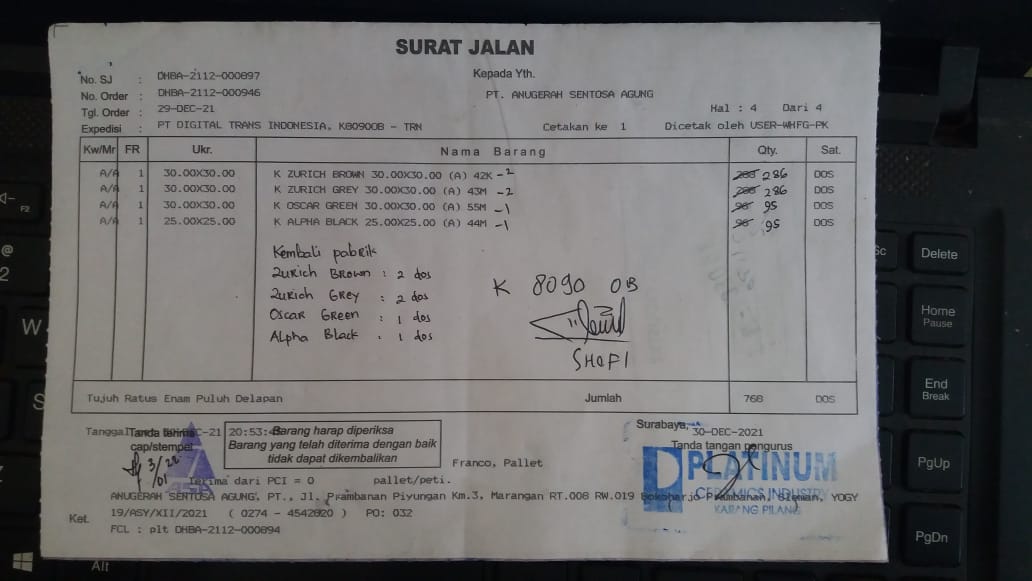 SURAT JALAN
No. SJ : DHBA-2112-000897
Kepada Yth.
No. Order : DHBA-2112-000946
PT. ANUGERAH SENTOSA AGUNG
Tgl. Order : 29-DEC-21
Hal : 4 Dari 4
Expedisi : PT DIGITAL TRANS INDONESIA, K8090OB - TRN
Cetakan ke 1 Dicetak oleh USER-WHFG-PK
Kw/Mr FR Ukr. Nama Barang Qty. Sat.
A/A 1 30.00X30.00 K ZURICH BROWN 30.00X30.00 (A) 42K -2 288 286 DOS
A/A 1 30.00X30.00 K ZURICH GREY 30.00X30.00 (A) 43M -2 288 286 DOS
A/A 1 30.00X30.00 K OSCAR GREEN 30.00X30.00 (A) 55M -1 96 95 DOS
A/A 1 25.00X25.00 K ALPHA BLACK 25.00X25.00 (A) 44M -1 96 95 DOS
Kembali pabrik
Zurich Brown : 2 dos
Zurich Grey : 2 dos
Oscar Green : 1 dos
Alpha Black : 1 dos
K 8090 OB
SHOFI
Tujuh Ratus Enam Puluh Delapan Jumlah 768 DOS
Tanggal DEC-21 20:53:4
Tanda terima
cap/stempel
3/22
01
ASA
Barang harap diperiksa
Barang yang telah diterima dengan baik
tidak dapat dikembalikan
Surabaya, 30-DEC-2021
Tanda tangan pengurus
Franco, Pallet
Terima dari PCI = 0 pallet/peti.
PLATINUM
CERAMICS INDUSTRY
KARANG PILANG
ANUGERAH SENTOSA AGUNG, PT., Jl. Prambanan Piyungan Km.3, Marangan RT.008 RW.019 Bokoharjo Prambanan, Sleman, YOGY
Ket. 19/ASY/XII/2021 ( 0274 - 4542820 ) PO: 032
FCL : plt DHBA-2112-000894
Delete
Home
Pause
End
Break
PgUp
PgDn
F2
@
2
W
S
Alt